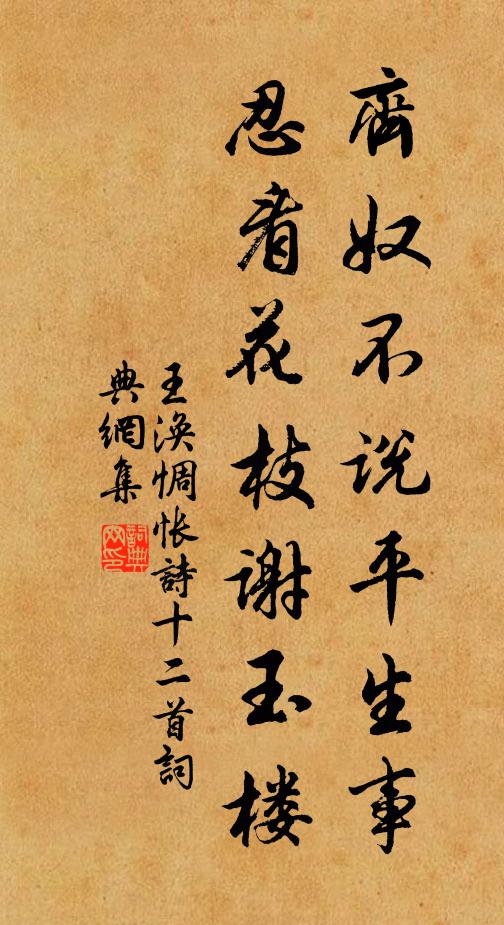 齊奴不说平生事
忍看花枝謝玉楼
王渙惆悵詩十二首詞
典網集
詞典网印